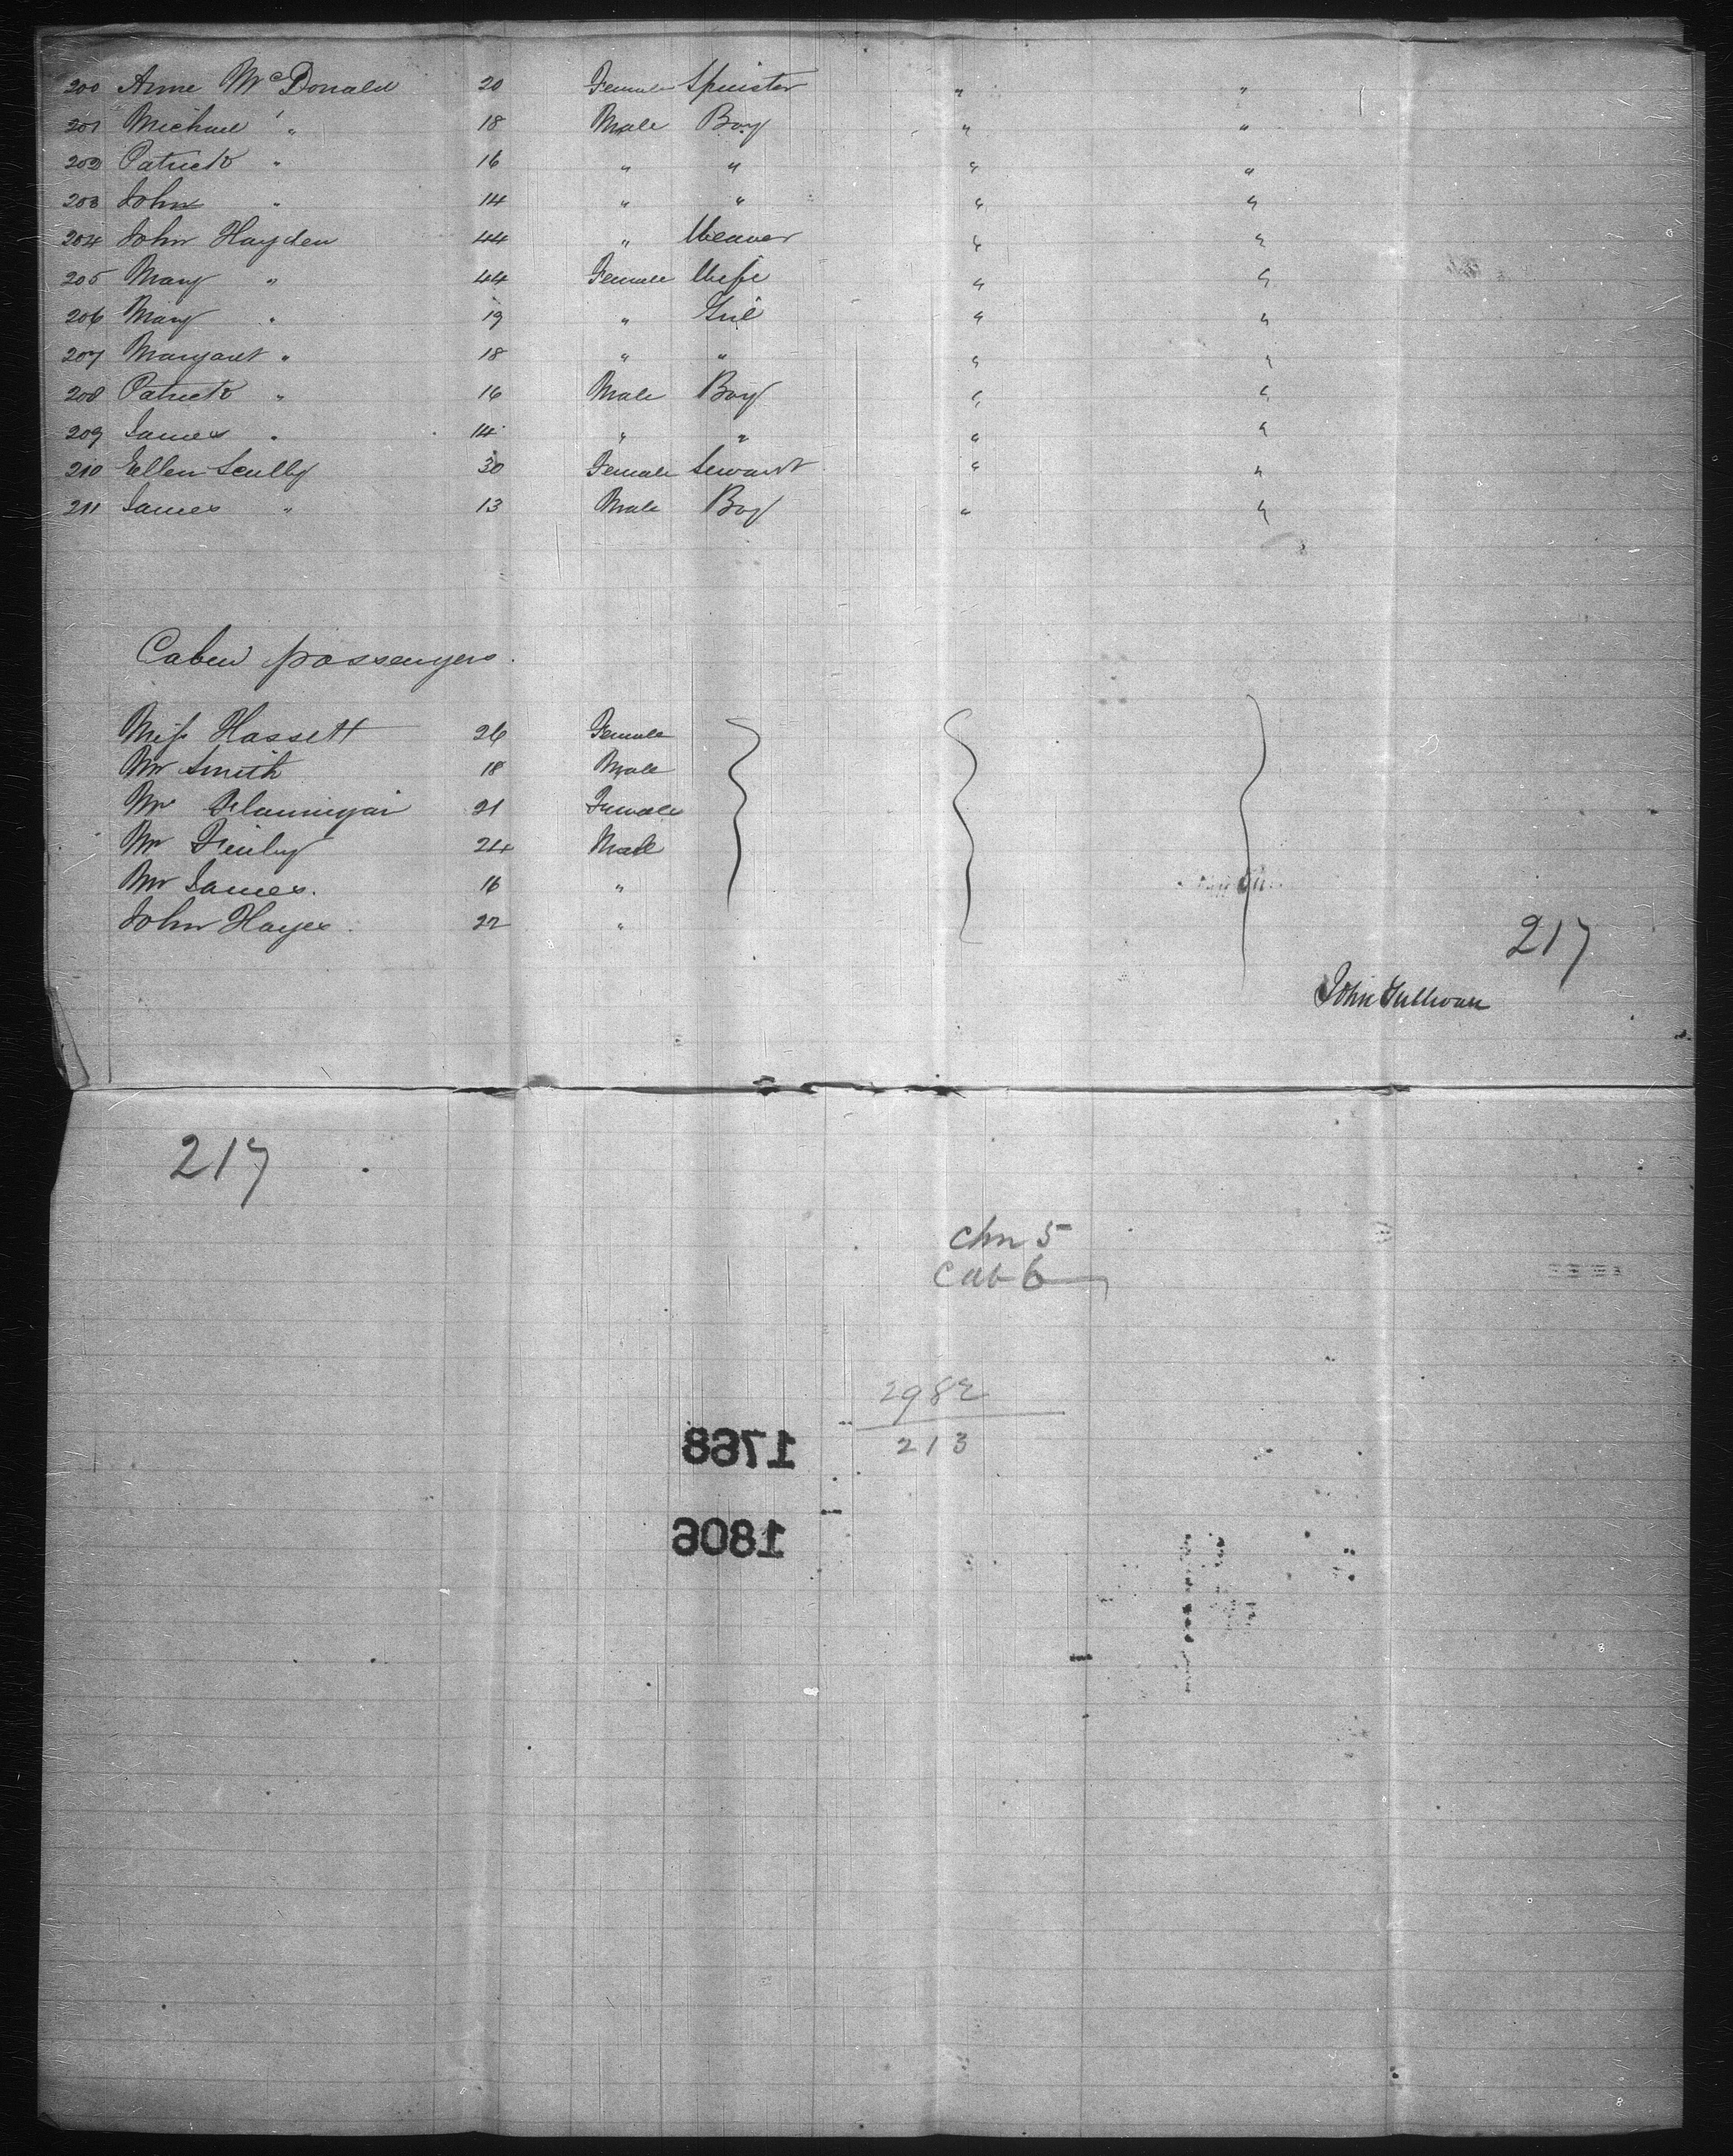 200 Anne McDonald 20 Female Spinster " "
201 Michael " 18 Male Boy " "
202 Patrick " 16 " " " "
203 John " 14 " " " "
204 John Hayden 44 " Weaver " "
205 Mary " 44 Female Wife " "
206 Mary " 19 " Girl " "
207 Margaret " 18 " " " "
208 Patrick " 16 Male Boy " "
209 James " 14 " " " "
210 Ellen Scully 30 Female Servant " "
211 James " 13 Male Boy " "
Cabin passengers.
Miss Hassett 26 Female
Mr Smith 18 Male
Mr 21 Female
Mr 24 Male
Mr James. 16 "
John Hayes 22 "
217
John Sullivan
217
Chn 5
Cab 6
2982
213
1768
1806